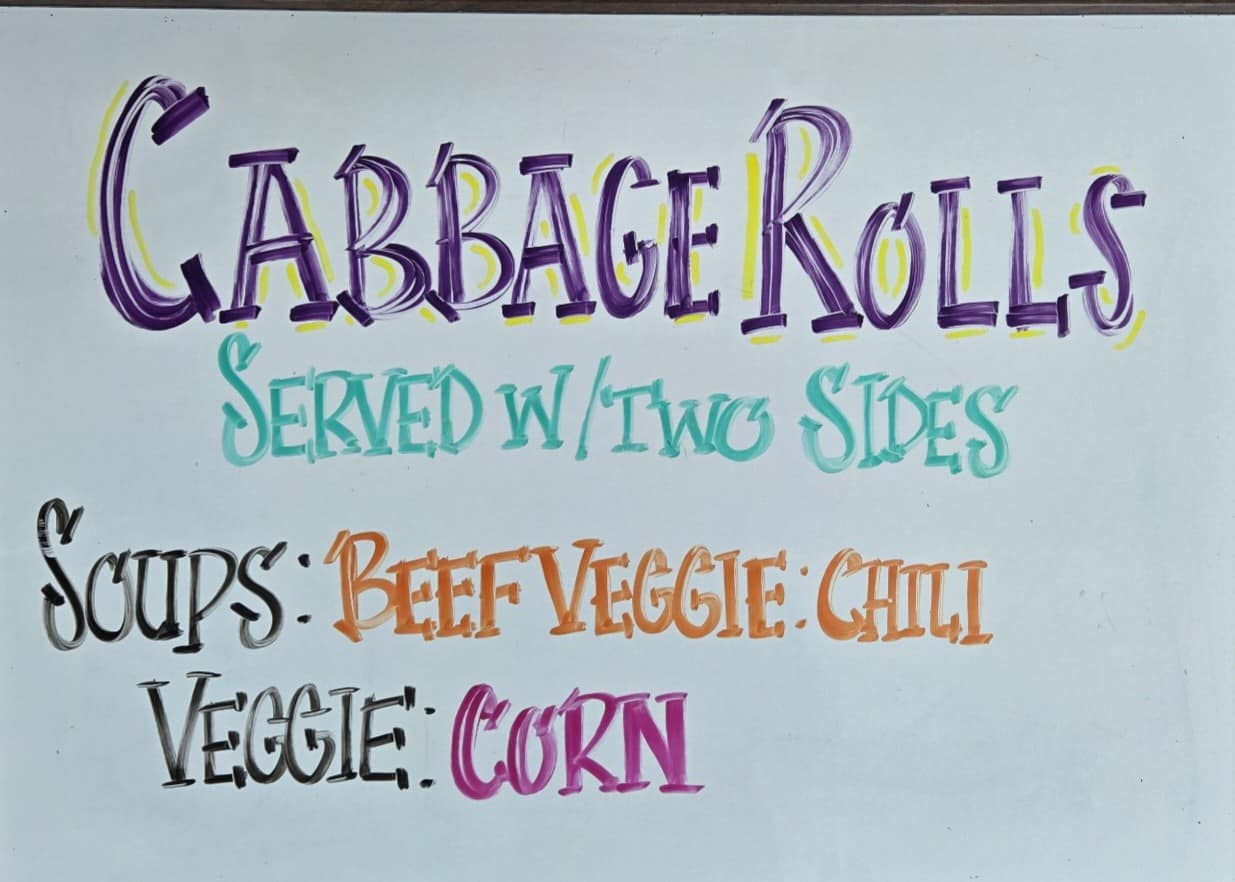 CABBAGE ROLLS
SERVED W/TWO SIDES
SOUPS: BEEF VEGGIE: CHILI
VEGGIE: CORN